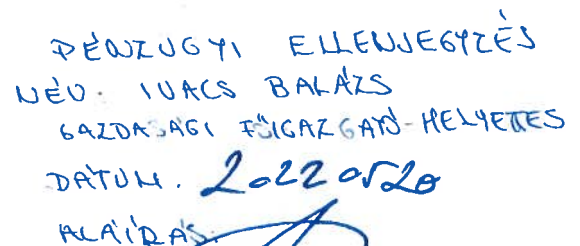 PÉNZÜGYI ELLENJEGYZÉS
NÉV. IVACS BALÁZS
GAZDASÁGI FŐIGAZGATÓ-HELYETTES
DÁTUM. 2022 05 20
ALÁÍRÁS: